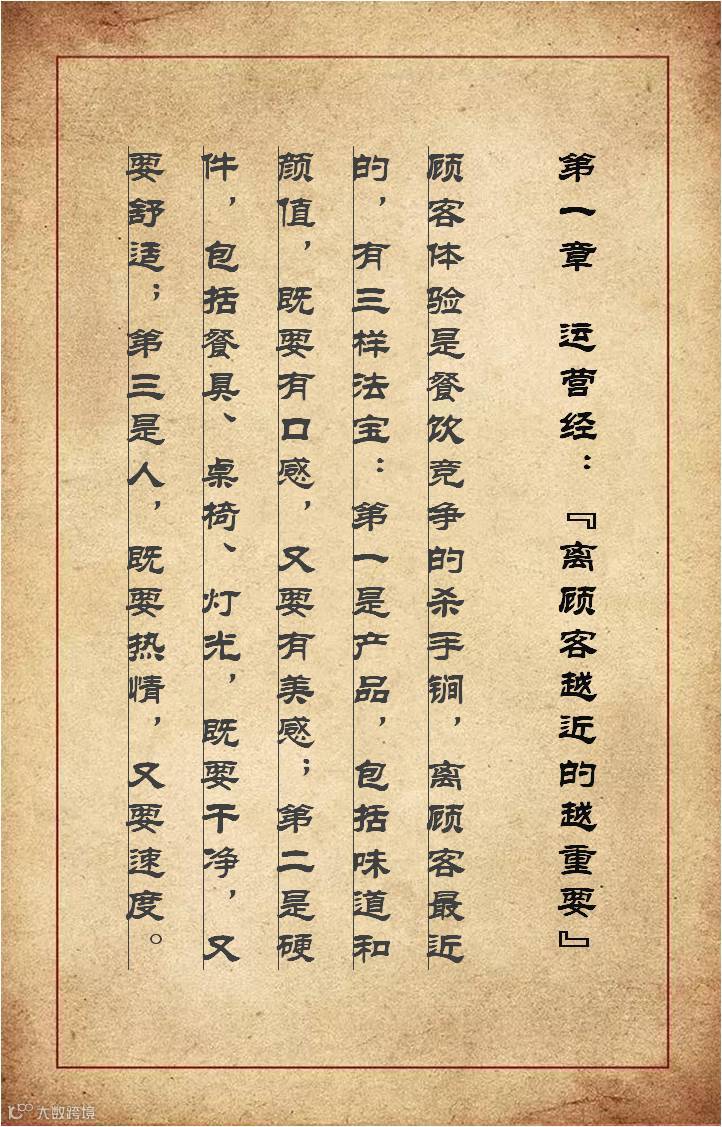 第一章 运营经：『离顾客越近的越重要』
顾客体验是餐饮竞争的杀手锏，离顾客最近
的，有三样法宝：第一是产品，包括味道和
颜值，既要有口感，又要有美感；第二是硬
件，包括餐具、桌椅、灯光，既要干净，又
要舒适；第三是人，既要热情，又要速度。
大数跨境